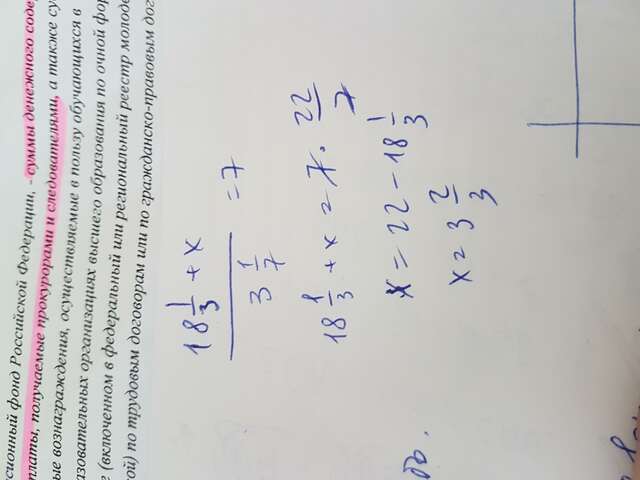 сионный фонд Российской Федерации, - суммы денежного соде
платы, получаемые прокурорами и следователями, а также су
ые вознаграждения, осуществляемые в пользу обучающихся в
азовательных организациях высшего образования по очной фор
е (включенном в федеральный или региональный реестр молоде
ой) по трудовым договорам или по гражданско-правовым дог
(18 1/3 + x) / (3 1/7) = 7
18 1/3 + x = 7 · 22/7
x = 22 - 18 1/3
x = 3 2/3